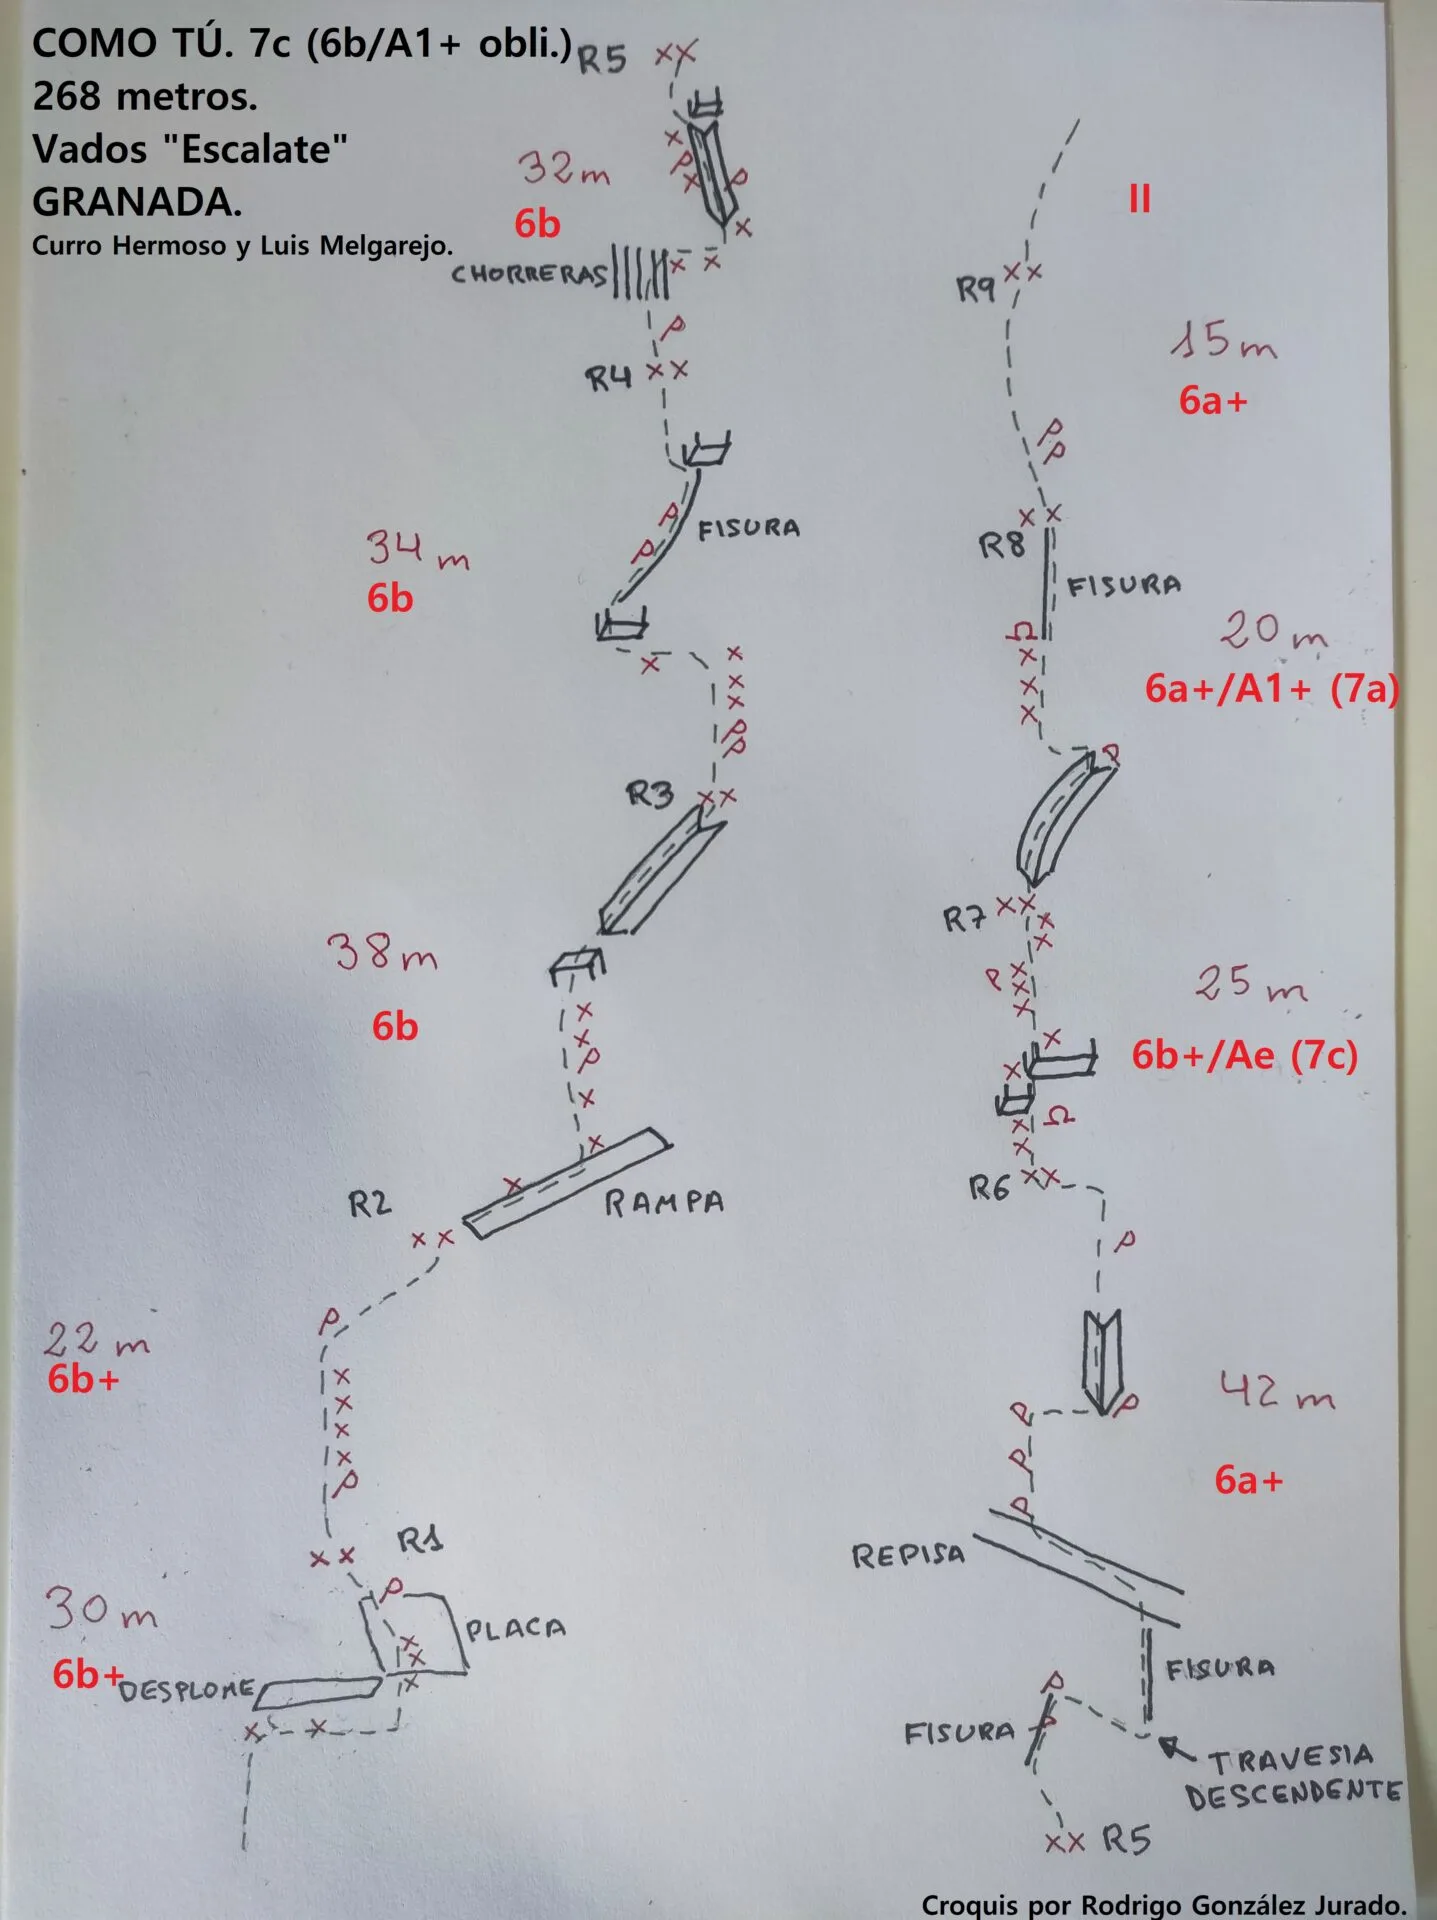 COMO TÚ. 7c (6b/A1+ obli.)
268 metros.
Vados "Escalate"
GRANADA.
Curro Hermoso y Luis Melgarejo.
R5
32m
6b
CHORRERAS
R4
FISURA
34 m
6b
R3
38m
6b
R2
RAMPA
22 m
6b+
R1
30 m
PLACA
6b+
DESPLOME
II
R9
15m
6a+
R8
FISURA
20 m
6a+/A1+ (7a)
R7
25 m
6b+/Ae (7c)
R6
42 m
6a+
REPISA
FISURA
FISURA
TRAVESIA
DESCENDENTE
R5
Croquis por Rodrigo González Jurado.